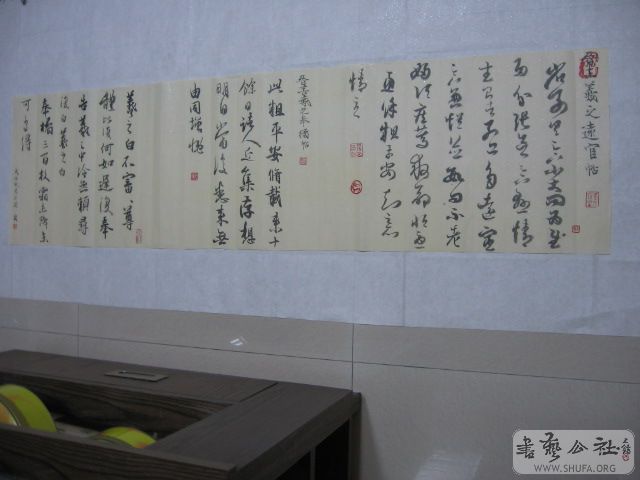 羲之遠宦帖
省別具足下小大問為慰
多分張念足下懸情
武昌諸子亦多遠宦
足下兼懷並數問不老
婦頃疾篤救命恒憂
慮餘粗平安知足下
情至
此粗平安脩載來十
餘日諸人近集存想
明日當復悉來無
由同增慨
羲之白不審尊
體比復何如遲復奉
告羲之中冷無賴尋
復白羲之白
奉橘三百枚霜未降未
可多得
書藝公社
WWW.SHUFA.ORG